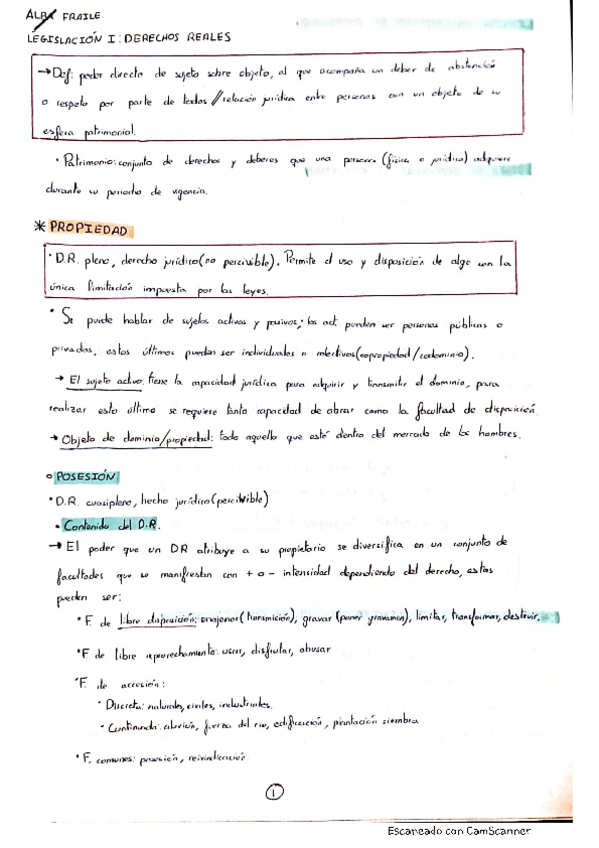 ALBA FRAILE
LEGISLACIÓN I: DERECHOS REALES
→ Def: poder directo de sujeto sobre objeto, al que acompaña un deber de abstención
o respeto por parte de todos // relación jurídica entre personas con un objeto de su
esfera patrimonial.
· Patrimonio: conjunto de derechos y deberes que una persona (física o jurídica) adquiere
durante su periodo de vigencia.
* PROPIEDAD
· D.R. pleno, derecho jurídico (no percivible). Permite el uso y disposición de algo con la
única limitación impuesta por las leyes.
· Se puede hablar de sujetos activos y pasivos; los act. pueden ser personas públicas o
privadas, estos últimos pueden ser individuales o colectivos (copropiedad / condominio).
→ El sujeto activo: tiene la capacidad jurídica para adquirir y transmitir el dominio, para
realizar esto último se requiere tanto capacidad de obrar como la facultad de disposición.
→ Objeto de dominio/propiedad: todo aquello que esté dentro del mercado de los hombres.
○ POSESIÓN
· D.R. cuasipleno, hecho jurídico (percivible)
· Contenido del D.R.
→ El poder que un DR atribuye a su propietario se diversifica en un conjunto de
facultades que se manifiestan con + o - intensidad dependiendo del derecho, estas
pueden ser:
· F. de libre disposición: enajenar (transmición), gravar (poner gravamen), limitar, transformar, destruir.
· F de libre aprovechamiento: usar, disfrutar, abusar
· F. de accesión:
· Discreta: naturales, civiles, industriales.
· Continuada: aluvión, fuerza del río, edificación, plantación siembra
· F. comunes: posesión, reivindicación.
1
Escaneado con CamScanner